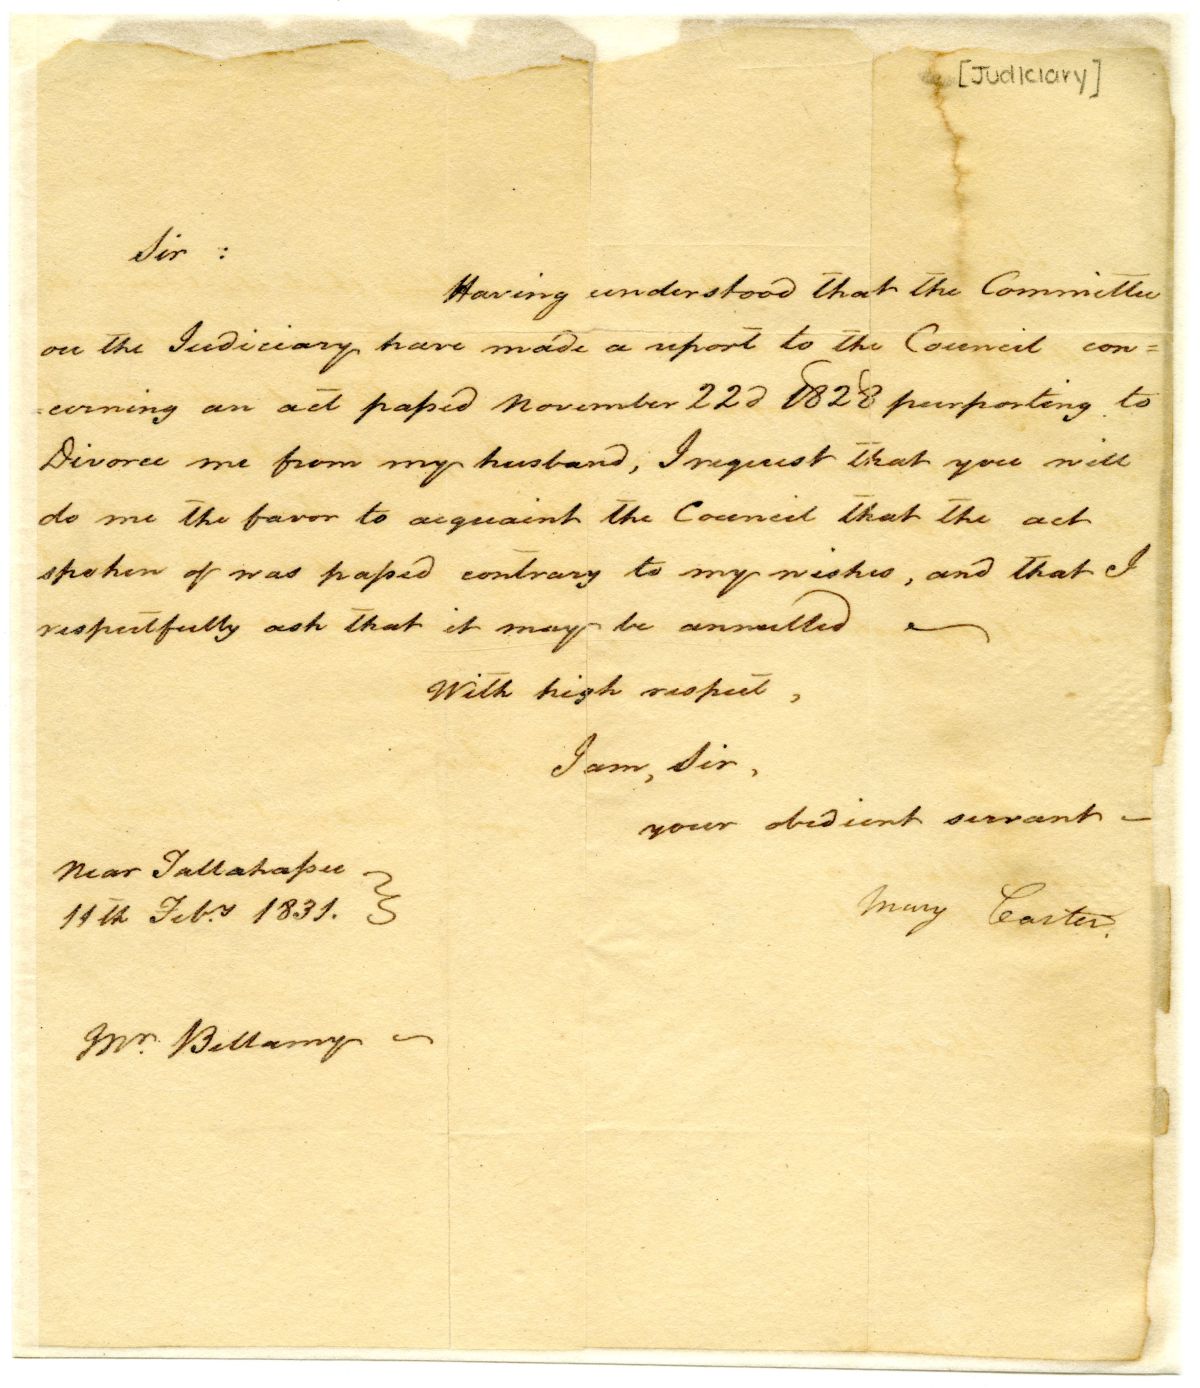 [Judiciary]
Sir :
Having understood that the Committee
on the Judiciary have made a report to the Council con=
=cerning an act paſsed November 22d 1828 purporting to
Divorce me from my husband, I request that you will
do me the favor to acquaint the Council that the act
spoken of was paſsed contrary to my wishes, and that I
respectfully ask that it may be annulled
With high respect,
I am, Sir,
your obedient servant —
Near Tallahaſsee
11th Feb.y 1831.
Mary Carter.
Mr. Bellamy —